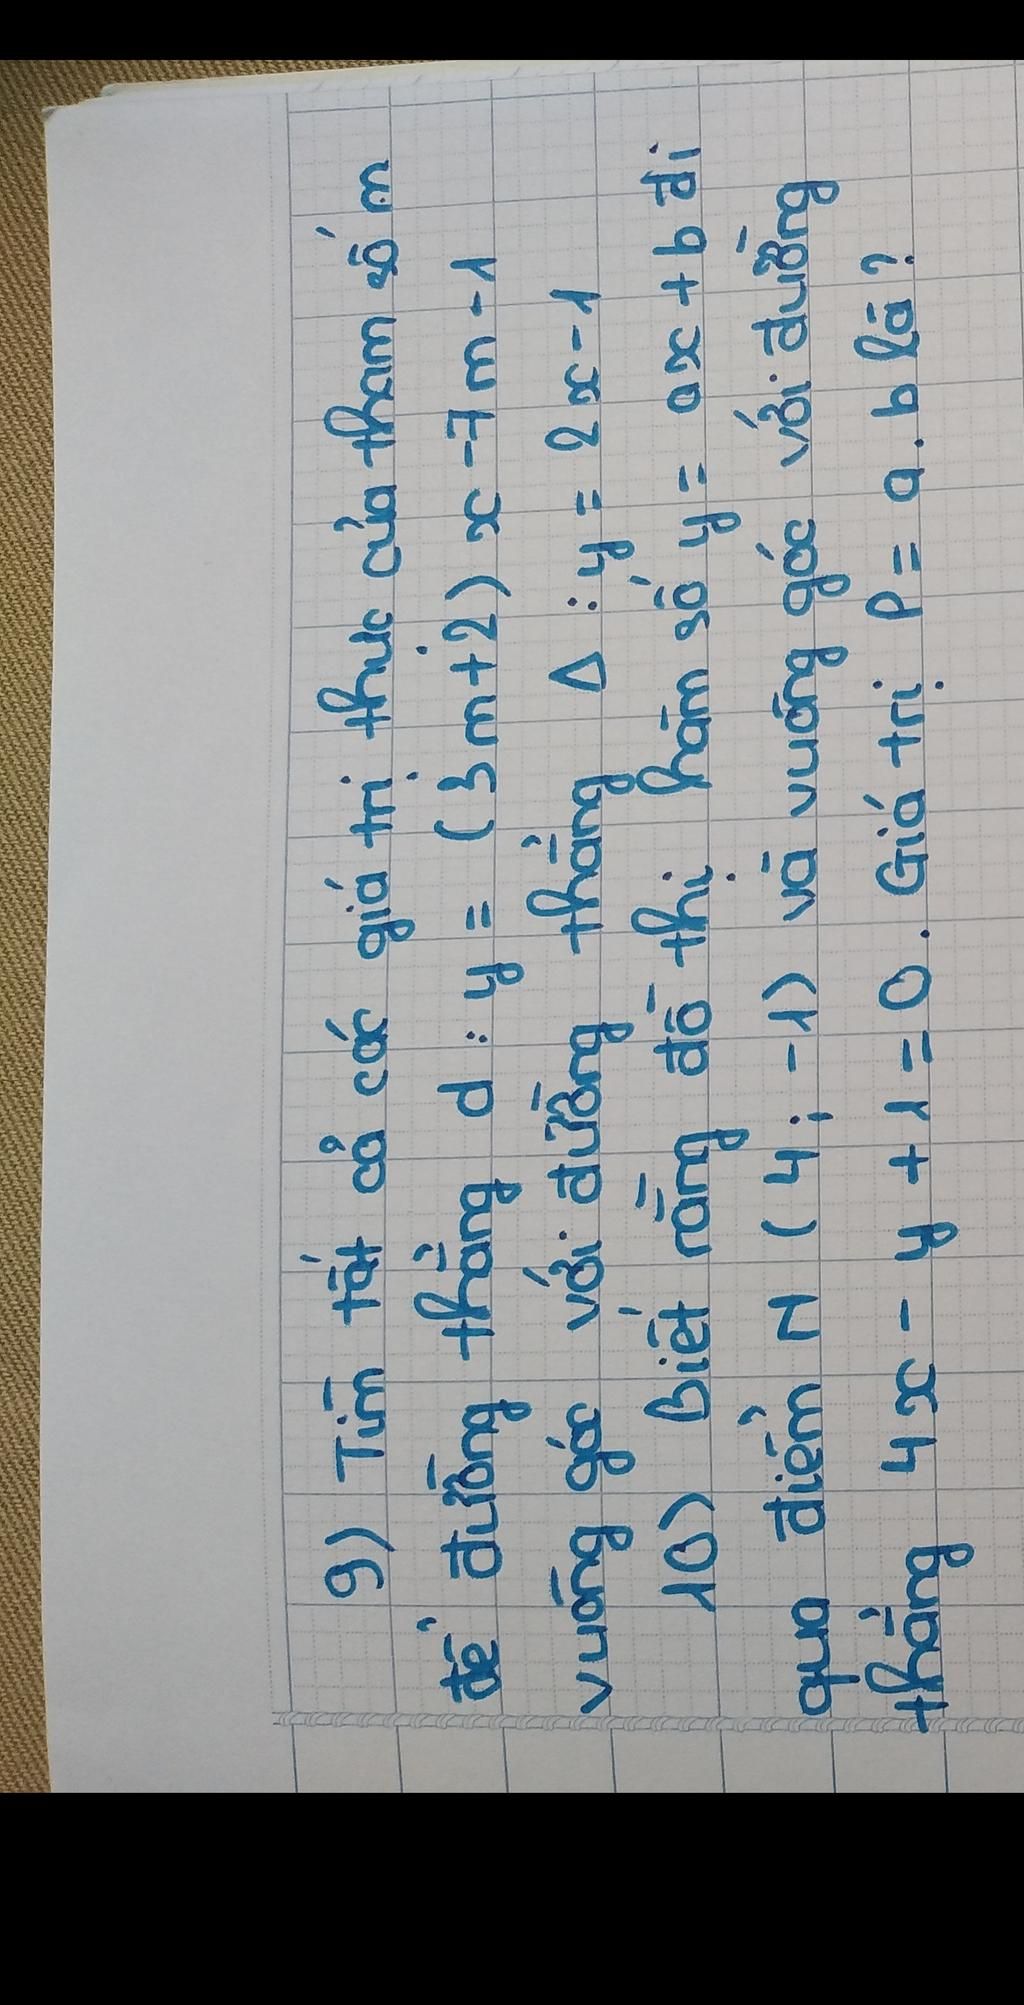 9) Tìm tất cả các giá trị thực của tham số m
để đường thẳng d : y = (3m+2)x -7m-1
vuông góc với đường thẳng Δ : y = 2x-1
10) Biết rằng đồ thị hàm số y = ax+b đi
qua điểm M (4; -1) và vuông góc với đường
thẳng 4x - y + 1 = 0. Giá trị P = a.b là?